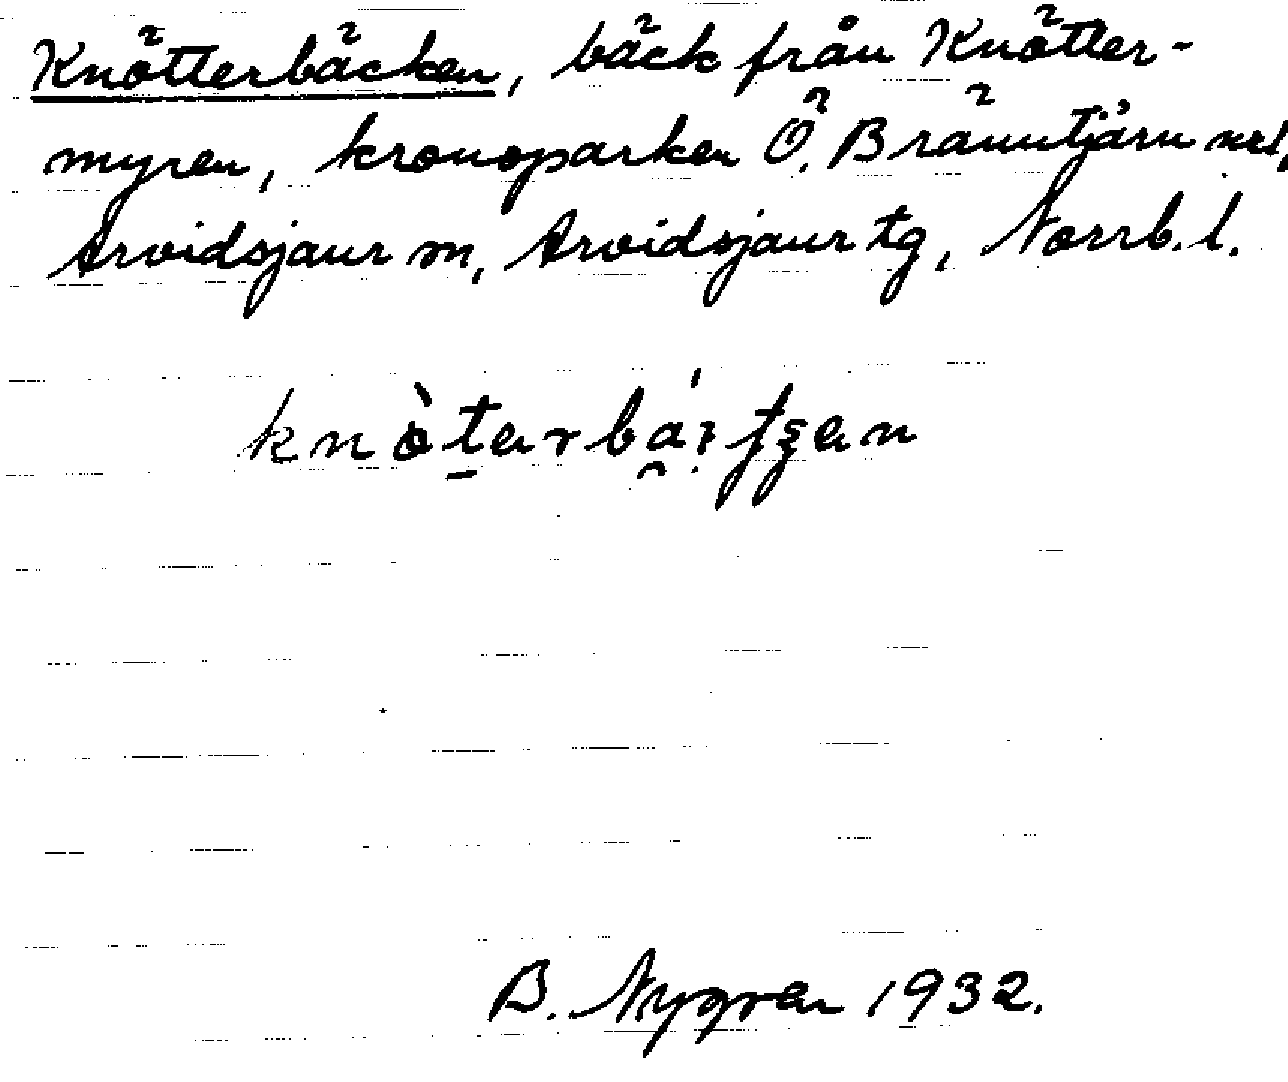 Knötterbäcken, bäck från Knötter-
myren, kronoparken Ö. Bränntjärn
Arvidsjaur sn, Arvidsjaur tg, Norrb. l.
B. Nygren 1932.